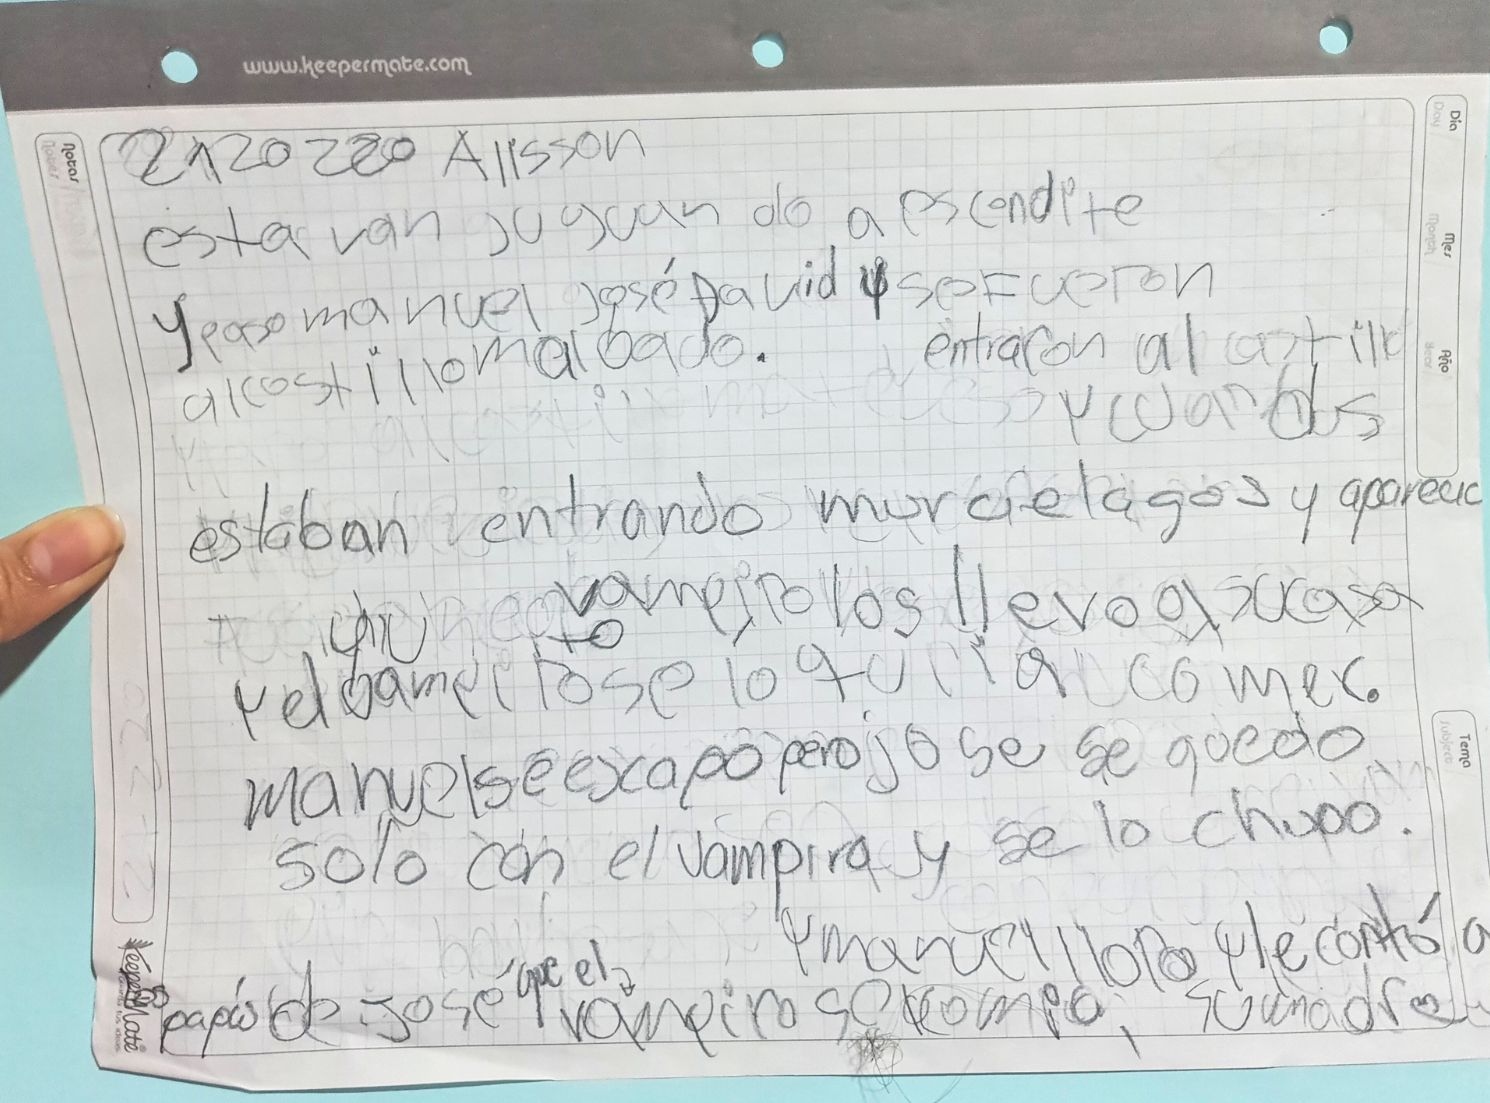 www.keepermate.com
Notas
Notes
Día
Day
Mes
Month
Año
Year
Tema
Subject
KeeperMate
Alisson
esta van juguan do a escondite
y paso manuel josé David y se Fueron
al costillo malbado. entraron al castillo
y cuandos
estaban entrando murcielagos y aparecic
un vampiro los llevo a su casa
y el bameiro se lo quiria comer.
manuel se excapo pero jose se quedo
solo con el vampira y se lo chupo.
y manuel lloro y le contó a
papás de josé que el vampeiro se comio, su madre